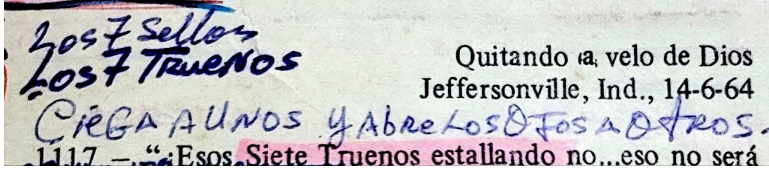 Los 7 Sellos
Los 7 TRUENOS
Quitando el velo de Dios
Jeffersonville, Ind., 14-6-64
CIEGA A UNOS Y AbRE LOS OJOS A OTROS.
1117 – “¡Esos Siete Truenos estallando no...eso no será